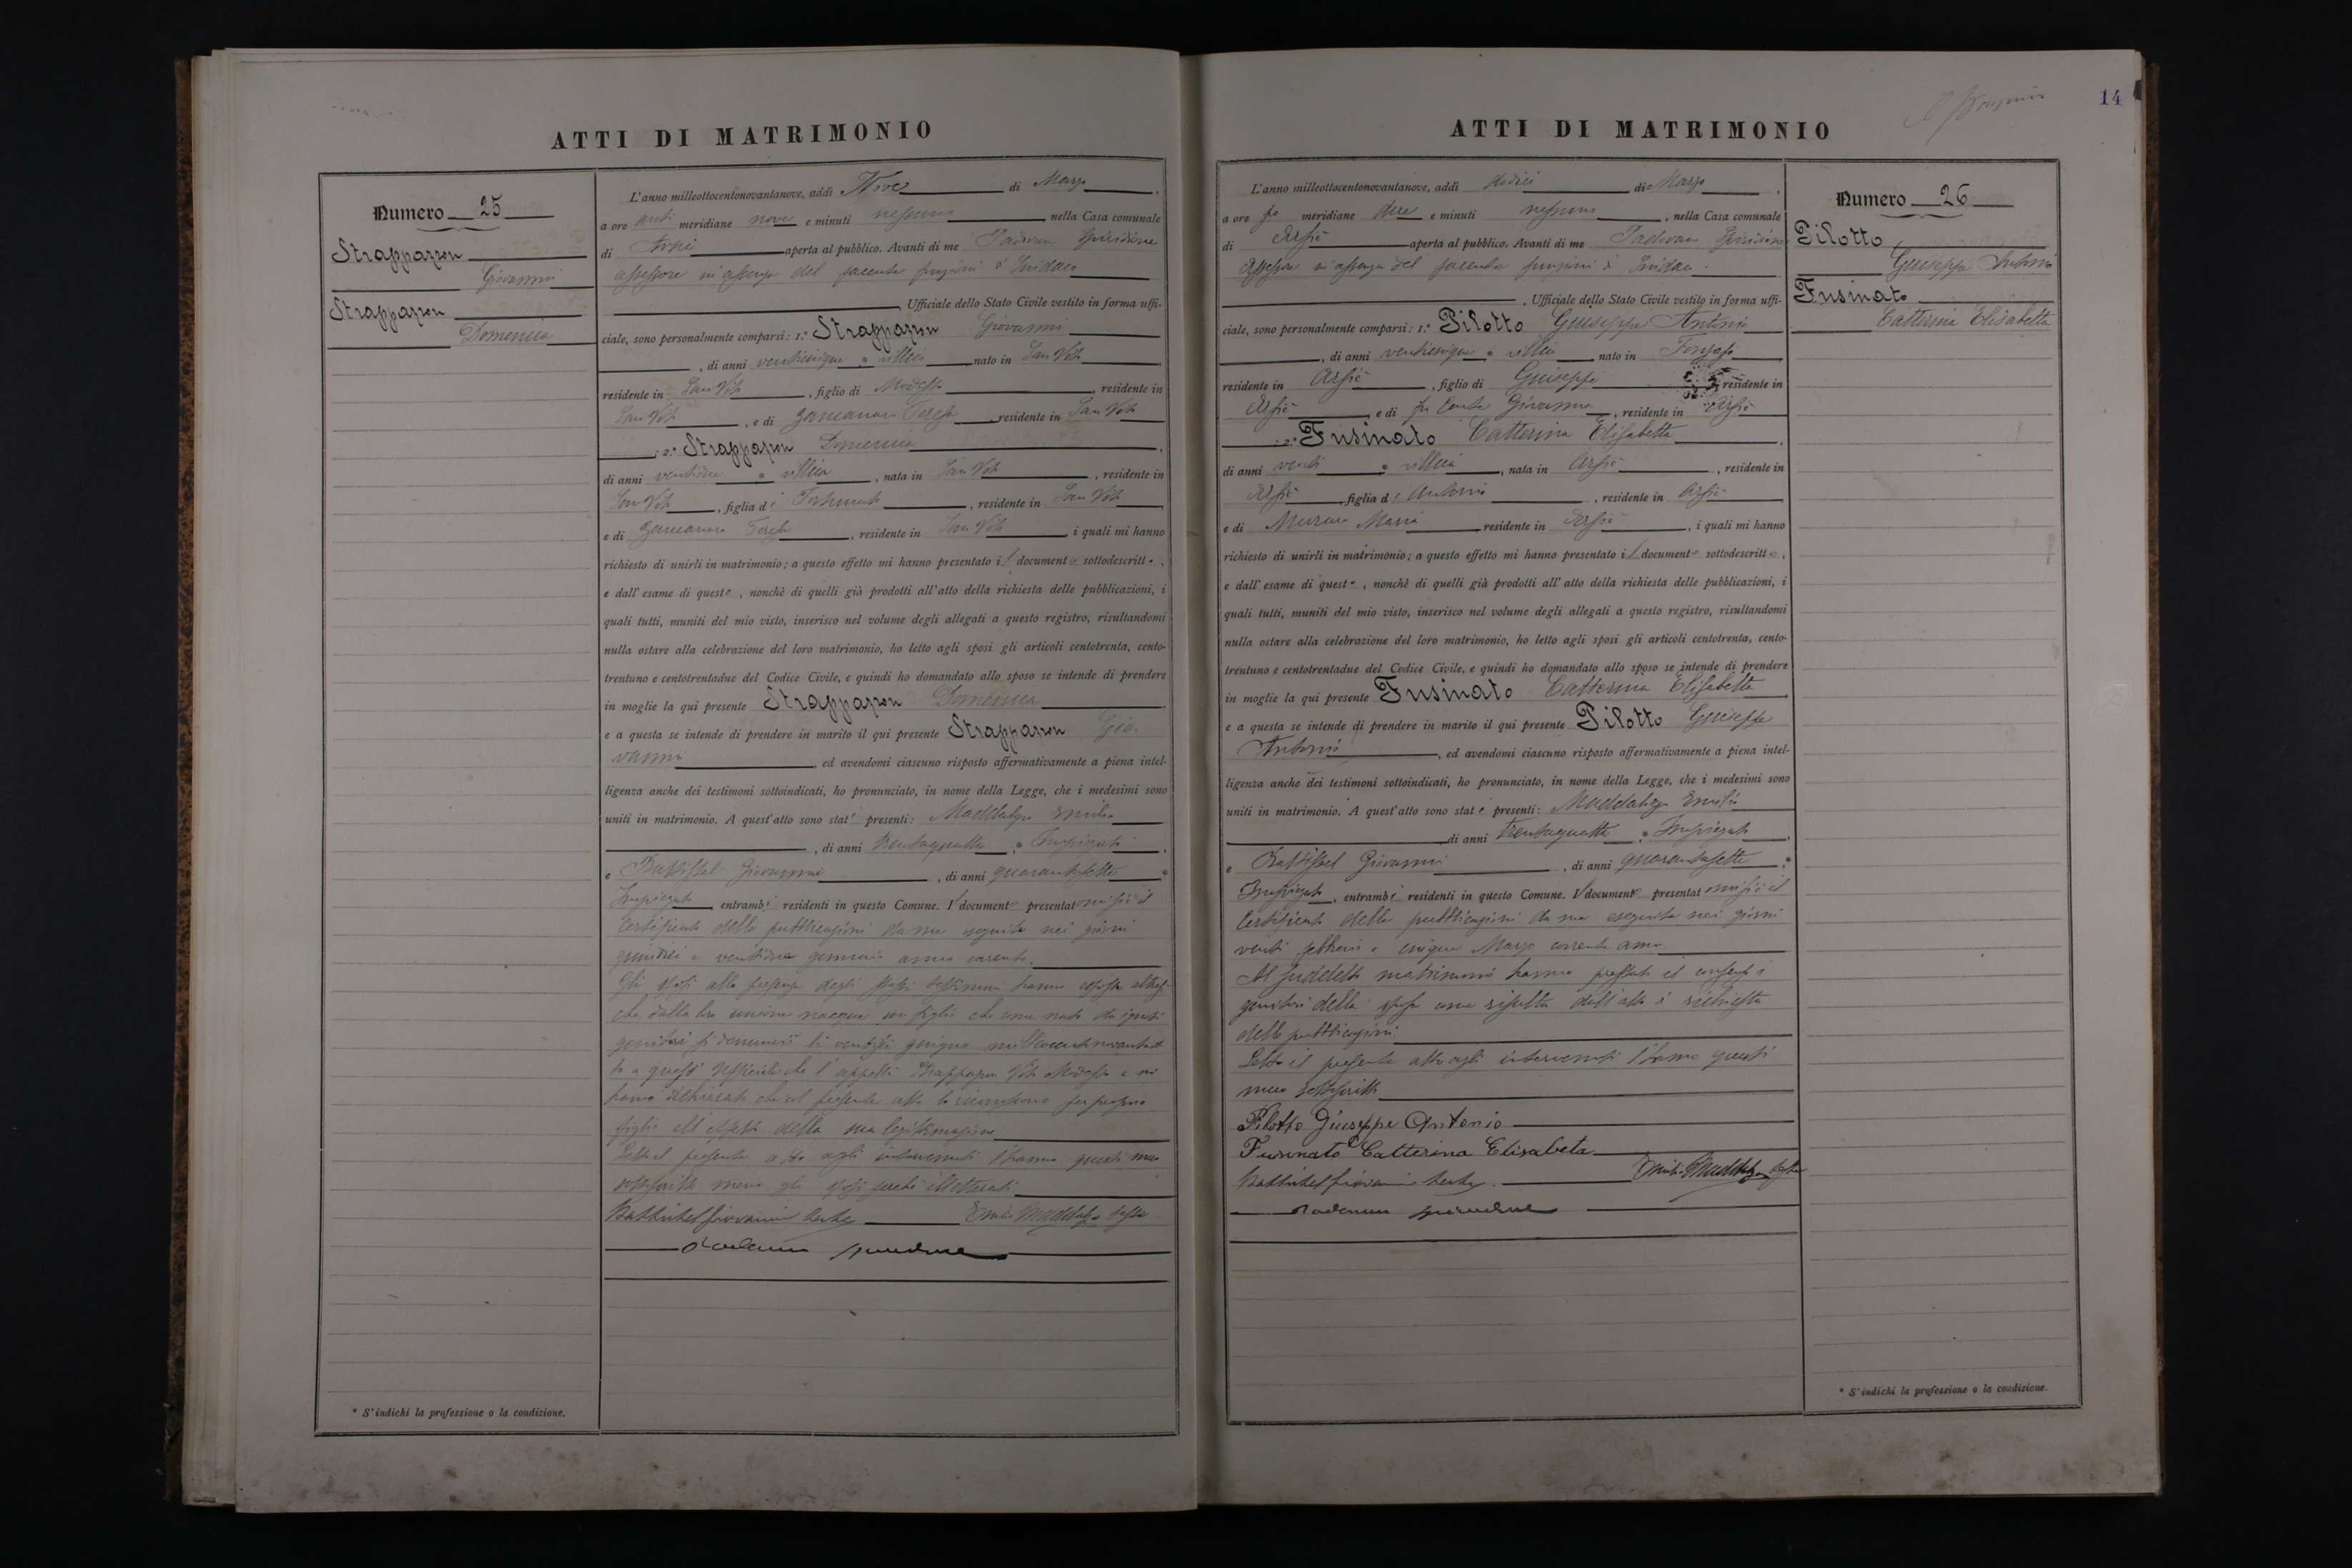 ATTI DI MATRIMONIO
Numero 25
Strappazzon
Giovanni
Strappazzon
Domenica
L'anno milleottocentonovantanove, addì Nove di Marzo,
a ore anti meridiane nove e minuti nessuno, nella Casa comunale
di Arsiè aperta al pubblico. Avanti di me Padovan Spiridione
assessore in assenza del facente funzioni di Sindaco
, Ufficiale dello Stato Civile vestito in forma uffi-
ciale, sono personalmente comparsi: 1.° Strappazzon Giovanni
, di anni venticinque, villico nato in San Vito
residente in San Vito, figlio di Modesto, residente in
San Vito, e di Zancanaro Teresa, residente in San Vito
; 2.° Strappazzon Domenica,
di anni ventidue, villica, nata in San Vito, residente in
San Vito, figlia di Fortunato, residente in San Vito,
e di Zancanaro Teresa, residente in San Vito, i quali mi hanno
richiesto di unirli in matrimonio; a questo effetto mi hanno presentato il documento sottodescritto,
e dall'esame di questo, nonchè di quelli già prodotti all'atto della richiesta delle pubblicazioni, i
quali tutti, muniti del mio visto, inserisco nel volume degli allegati a questo registro, risultandomi
nulla ostare alla celebrazione del loro matrimonio, ho letto agli sposi gli articoli centotrenta, cento-
trentuno e centotrentadue del Codice Civile, e quindi ho domandato allo sposo se intende di prendere
in moglie la qui presente Strappazzon Domenica,
e a questa se intende di prendere in marito il qui presente Strappazzon Gio-
vanni, ed avendomi ciascuno risposto affermativamente a piena intel-
ligenza anche dei testimoni sottoindicati, ho pronunciato, in nome della Legge, che i medesimi sono
uniti in matrimonio. A quest'atto sono stati presenti: Maddalozzo Emilio
, di anni trentaquattro, Impiegato,
e Battistel Giovanni, di anni quarantasette,
Impiegato, entrambi residenti in questo Comune. Il documento presentatomi si è il
Certificato delle pubblicazioni da me eseguite nei giorni
quindici e ventidue gennaio anno corrente.
Gli sposi alla presenza degli stessi testimoni hanno esposto altresì
che dalla loro unione nacque un figlio che come nato da ignoti
genitori si denunciò li ventisei giugno
a quest' Ufficio che l'appellò Strappazzon Vito Modesto e mi
hanno dichiarato che col presente atto lo riconoscono per proprio
figlio all'effetto della sua legittimazione
Letto il presente atto agli intervenuti l'hanno questi meco
sottoscritto meno gli sposi perché illetterati
Battistel Giovanni teste Emilio Maddalozzo teste
Padovan Spiridione
* S'indichi la professione o la condizione.
14
ATTI DI MATRIMONIO
Numero 26
Pilotto
Giuseppe Antonio
Fusinato
Catterina Elisabetta
L'anno milleottocentonovantanove, addì dodici di Marzo,
a ore po meridiane due e minuti nessuno, nella Casa comunale
di Arsiè aperta al pubblico. Avanti di me Padovan Spiridione
Assessore in assenza del facente funzioni di Sindaco
, Ufficiale dello Stato Civile vestito in forma uffi-
ciale, sono personalmente comparsi: 1.° Pilotto Giuseppe Antonio
, di anni venticinque, villico nato in Fonzaso
residente in Arsiè, figlio di Giuseppe residente in
Arsiè, e di fu Conte Giovanna, residente in Arsiè
; 2.° Fusinato Catterina Elisabetta,
di anni venti, villica, nata in Arsiè, residente in
Arsiè figlia di Antonio, residente in Arsiè
e di Maria residente in Arsiè, i quali mi hanno
richiesto di unirli in matrimonio; a questo effetto mi hanno presentato il documento sottodescritto,
e dall'esame di questo, nonchè di quelli già prodotti all'atto della richiesta delle pubblicazioni, i
quali tutti, muniti del mio visto, inserisco nel volume degli allegati a questo registro, risultandomi
nulla ostare alla celebrazione del loro matrimonio, ho letto agli sposi gli articoli centotrenta, cento-
trentuno e centotrentadue del Codice Civile, e quindi ho domandato allo sposo se intende di prendere
in moglie la qui presente Fusinato Catterina Elisabetta
e a questa se intende di prendere in marito il qui presente Pilotto Giuseppe
Antonio, ed avendomi ciascuno risposto affermativamente a piena intel-
ligenza anche dei testimoni sottoindicati, ho pronunciato, in nome della Legge, che i medesimi sono
uniti in matrimonio. A quest'atto sono stati presenti: Maddalozzo Emilio
di anni trentaquattro, Impiegato,
e Battistel Giovanni, di anni quarantasette,
Impiegato, entrambi residenti in questo Comune. Il documento presentatomi si è il
Certificato delle pubblicazioni da me eseguite nei giorni
venti febbraio e cinque Marzo corrente anno.
Al suddetto matrimonio hanno prestato il consenso i
genitori della sposa come risulta dall'atto di richiesta
delle pubblicazioni.
Letto il presente atto agli intervenuti l'hanno questi
meco sottoscritto
Pilotto Giuseppe Antonio
Fusinato Catterina Elisabeta
Battistel Giovanni teste. Emilio Maddalozzo teste
Padovan Spiridione
* S'indichi la professione o la condizione.